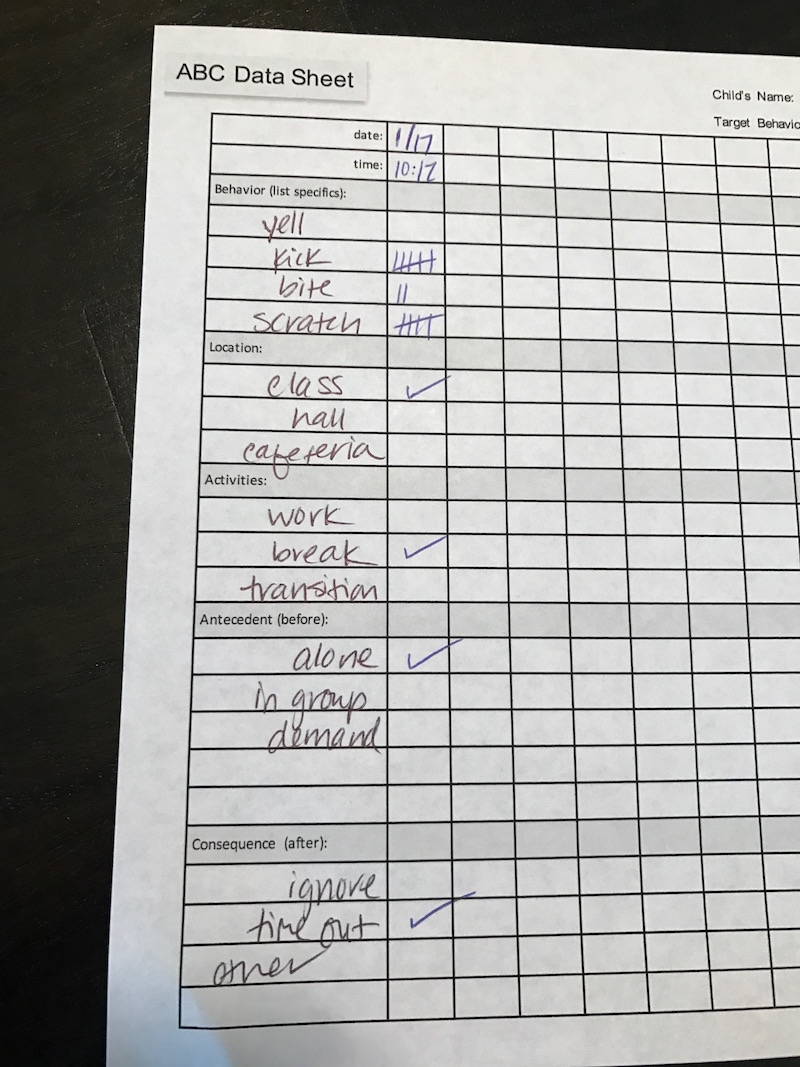 ABC Data Sheet
Child's Name:
Target Behavio
date: 1/17
time: 10:17
Behavior (list specifics):
yell
kick
bite
scratch
Location:
class
hall
cafeteria
Activities:
work
break
transition
Antecedent (before):
alone
in group
demand
Consequence (after):
ignore
time out
other